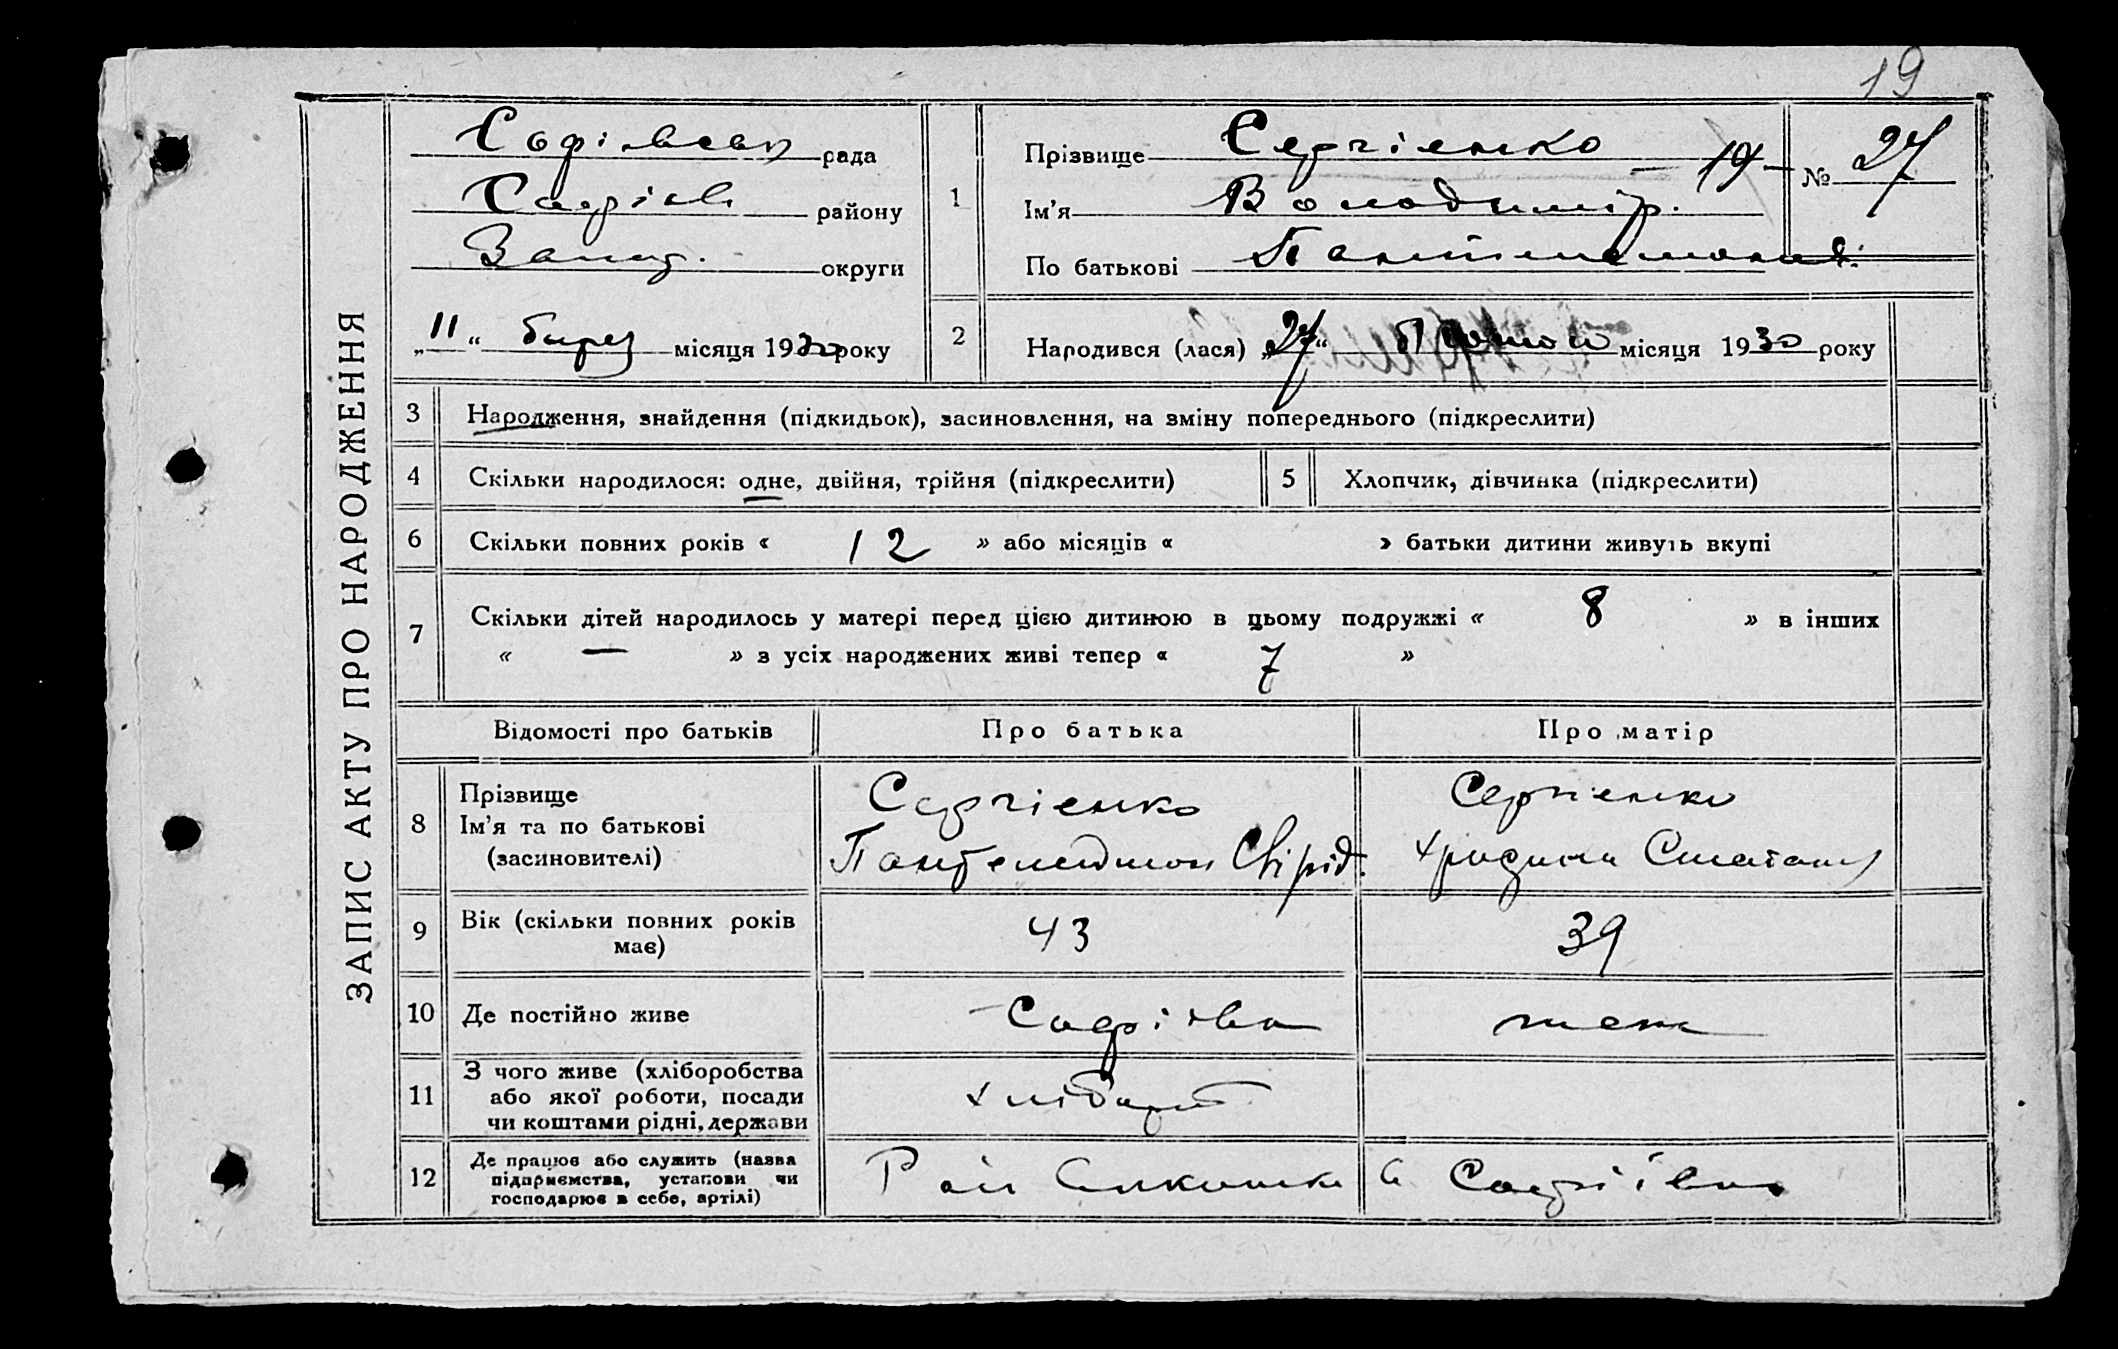 19
ЗАПИС АКТУ ПРО НАРОДЖЕННЯ
рада
району
округи
„11“ місяця 19 року
1
Прізвище Сергіенко
Ім’я Володимір.
По батькові
— 19 —
№ 27
2
Народився (лася) „27“ місяця 1930 року
3 Народження, знайдення (підкидьок), засиновлення, на зміну попереднього (підкреслити)
4 Скільки народилося: одне, двійня, трійня (підкреслити)
5 Хлопчик, дівчинка (підкреслити)
6 Скільки повних років « 12 » або місяців « » батьки дитини живуть вкупі
7 Скільки дітей народилось у матері перед цією дитиною в цьому подружжі « 8 » в інших
« — » з усіх народжених живі тепер « 7 »
Відомості про батьків Про батька Про матір
8 Прізвище
Ім’я та по батькові
(засиновителі)
Сергіенко
Свірід.
Сергіенко
9 Вік (скільки повних років
має)
43 39
10 Де постійно живе Софіївка
11 З чого живе (хліборобства
або якої роботи, посади
чи коштами рідні, держави
12 Де працює або служить (назва
підприємства, установи чи
господарює в себе, артілі)
с Софіївка